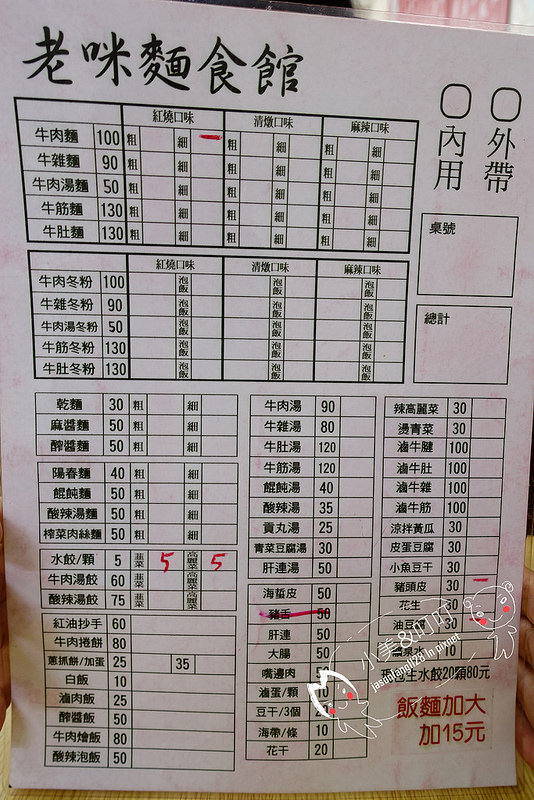 老咪麵食館
外帶
內用
桌號
總計
紅燒口味 清燉口味 麻辣口味
牛肉麵 100 粗 細 粗 細 粗 細
牛雜麵 90 粗 細 粗 細 粗 細
牛肉湯麵 50 粗 細 粗 細 粗 細
牛筋麵 130 粗 細 粗 細 粗 細
牛肚麵 130 粗 細 粗 細 粗 細
紅燒口味 清燉口味 麻辣口味
牛肉冬粉 100 泡飯 泡飯 泡飯
牛雜冬粉 90 泡飯 泡飯 泡飯
牛肉湯冬粉 50 泡飯 泡飯 泡飯
牛筋冬粉 130 泡飯 泡飯 泡飯
牛肚冬粉 130 泡飯 泡飯 泡飯
乾麵 30 粗 細
麻醬麵 50 粗 細
醡醬麵 50 粗 細
陽春麵 40 粗 細
餛飩麵 50 粗 細
酸辣湯麵 50 粗 細
榨菜肉絲麵 50 粗 細
水餃/顆 5 韭菜 5 高麗菜 5
牛肉湯餃 60 韭菜 高麗菜
酸辣湯餃 75 韭菜 高麗菜
紅油抄手 60
牛肉捲餅 80
蔥抓餅/加蛋 25 35
白飯 10
滷肉飯 25
醡醬飯 50
牛肉燴飯 80
酸辣泡飯 50
牛肉湯 90
牛雜湯 80
牛肚湯 120
牛筋湯 120
餛飩湯 40
酸辣湯 35
貢丸湯 25
青菜豆腐湯 30
肝連湯 50
海蜇皮 50
豬舌 50
肝連 50
大腸 50
嘴邊肉 50
滷蛋/顆 10
豆干/3個
海帶/條 10
花干 20
辣高麗菜 30
燙青菜 30
滷牛腱 100
滷牛肚 100
滷牛雜 100
滷牛筋 100
涼拌黃瓜 30
皮蛋豆腐 30
小魚豆干 30
豬頭皮 30
花生 30
油豆腐 30
礦泉水 10
生水餃20顆80元
飯麵加大
加15元
小美&叮叮